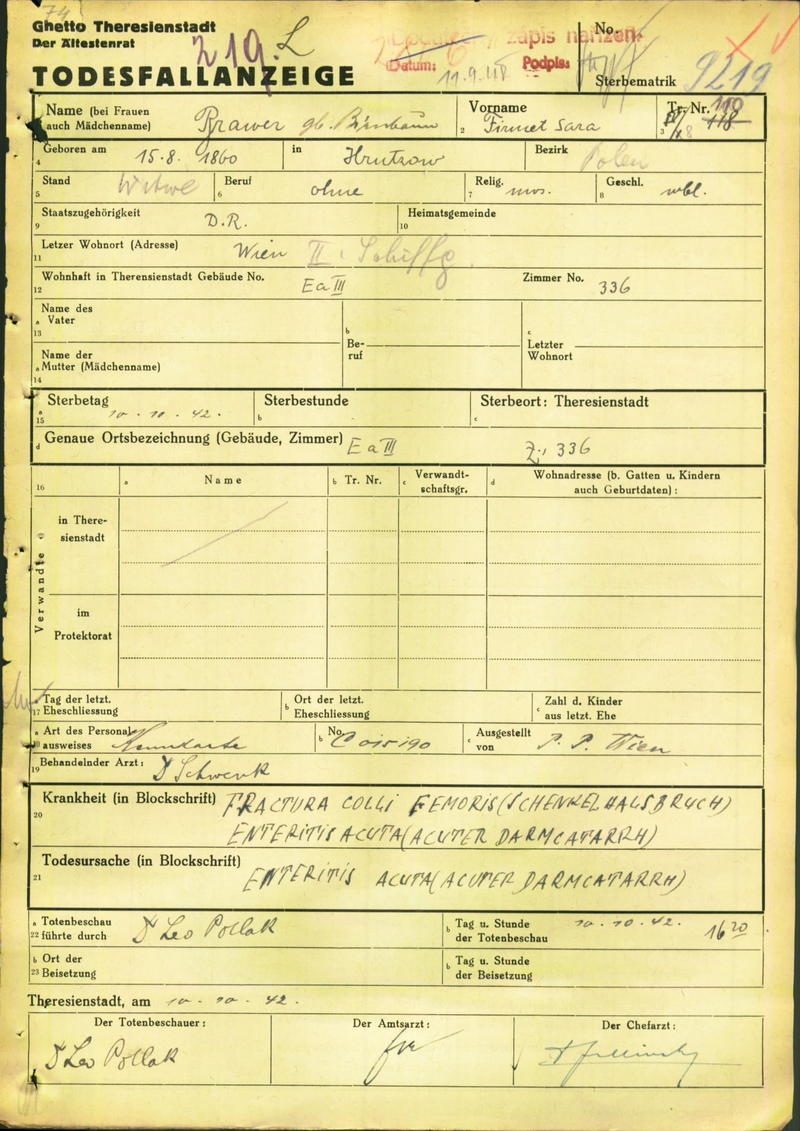 74
Ghetto Theresienstadt
Der Ältestenrat
219. L
TODESFALLANZEIGE
zápis nařízen
Datum: 11.9.48 Podpis:
No.
Sterbematrik 9219
Name (bei Frauen auch Mädchenname) Brawer gb. Birnbaum
Vorname 2 Firmet Sara
Tr. Nr. 110
3 IV/8 118
4 Geboren am 15.8. 1860 in Hrutzow Bezirk Polen
5 Stand Witwe 6 Beruf ohne 7 Relig. mos. 8 Geschl. wbl.
9 Staatszugehörigkeit D.R. 10 Heimatsgemeinde
11 Letzer Wohnort (Adresse) Wien II. Schiffg.
12 Wohnhaft in Theresienstadt Gebäude No. E a III Zimmer No. 336
13 a Name des Vater b Beruf c Letzter Wohnort
14 a Name der Mutter (Mädchenname)
15 a Sterbetag 10. 10. 42. b Sterbestunde c Sterbeort: Theresienstadt
d Genaue Ortsbezeichnung (Gebäude, Zimmer) E a III Z. 336
16 a Name b Tr. Nr. c Verwandtschaftsgr. d Wohnadresse (b. Gatten u. Kindern auch Geburtdaten) :
Verwandte
in Theresienstadt
im Protektorat
17 a Tag der letzt. Eheschliessung b Ort der letzt. Eheschliessung c Zahl d. Kinder aus letzt. Ehe
18 a Art des Personalausweises Kennkarte b No. C 015190 c Ausgestellt von P. P. Wien
19 Behandelnder Arzt: Dr Schwenk
20 Krankheit (in Blockschrift) FRACTURA COLLI FEMORIS (SCHENKELHALSBRUCH)
ENTERITIS ACUTA (ACUTER DARMCATARRH)
21 Todesursache (in Blockschrift) ENTERITIS ACUTA (ACUTER DARMCATARRH)
22 a Totenbeschau führte durch Dr Leo Pollak b Tag u. Stunde der Totenbeschau 10. 10. 42. 16 20
23 b Ort der Beisetzung b Tag u. Stunde der Beisetzung
Theresienstadt, am 10. 10. 42.
Der Totenbeschauer : Der Amtsarzt : Der Chefarzt :
Dr Leo Pollak